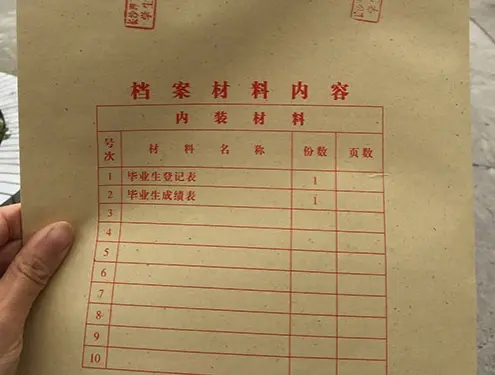 长沙
学生
长沙
学生
档案材料内容
内装材料
号次 材料名称 份数 页数
1 毕业生登记表 1
2 毕业生成绩表 1
3
4
5
6
7
8
9
10